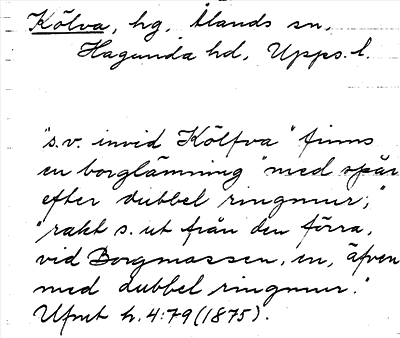 Kölva, hg, Ålands sn,
Hagunda hd, Upps. l.
"s.v. invid Kölfva" finns
en borglämning "med spår
efter dubbel ringmur;"
"rakt s. ut från den förra,
vid Borgmossen, en, äfven
med dubbel ringmur."
Ufmt h. 4:79 (1875).